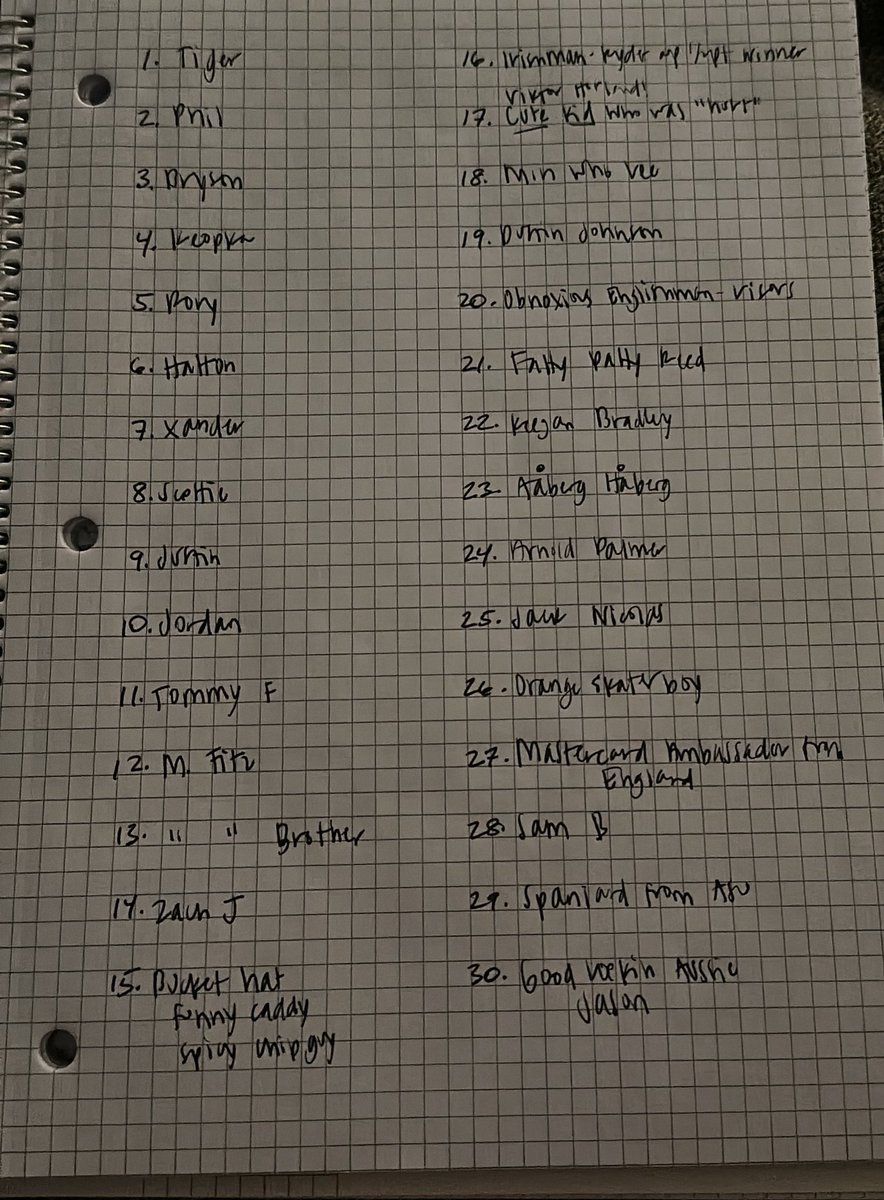 1. Tiger
2. Phil
3. Bryson
4. Keopka
5. Rory
6. Hatton
7. Xander
8. Scottie
9. Justin
10. Jordan
11. Tommy F
12. M. Fitz
13. " " Brother
14. Zach J
15. Bucket hat
funny caddy
spicy chip guy
16. Irishman - Ryder winner
Viktor Hovland
17. Cute kid who was "hurt"
18. Min Who Lee
19. Dustin Johnson
20. Obnoxious Englishman - visors
21. Fatty Patty Reed
22. Keegan Bradley
23. Aåberg Håberg
24. Arnold Palmer
25. Jack Nicolas
26. Orange skater boy
27. Mastercard Ambassador from
England
28. Sam B
29. Spaniard from ASU
30. Good lookin Aussie
Jason